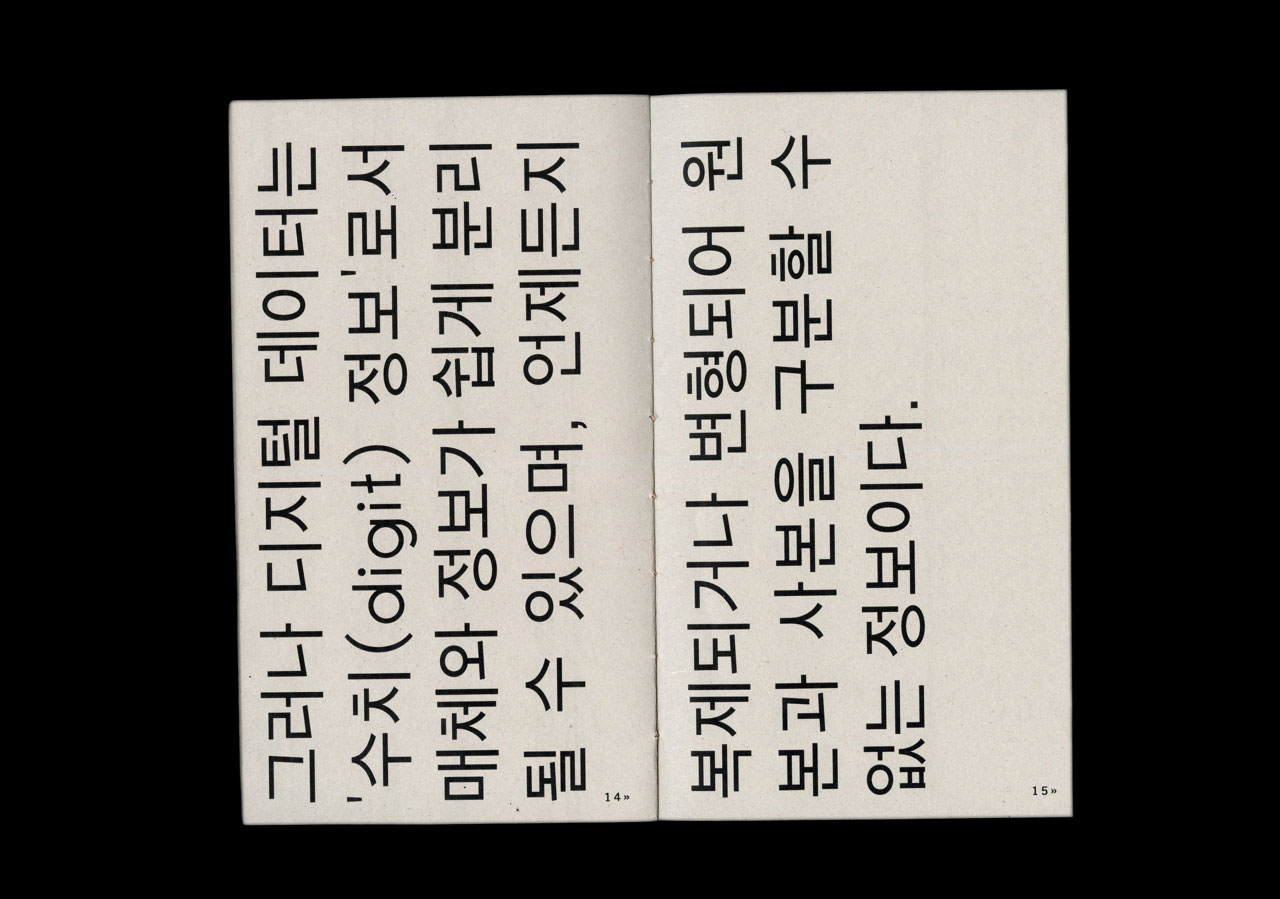 그러나 디지털 데이터는
'수치(digit) 정보'로서
매체와 정보가 쉽게 분리
될 수 있으며, 언제든지
14»
복제되거나 변형되어 원
본과 사본을 구분할 수
없는 정보이다.
15»